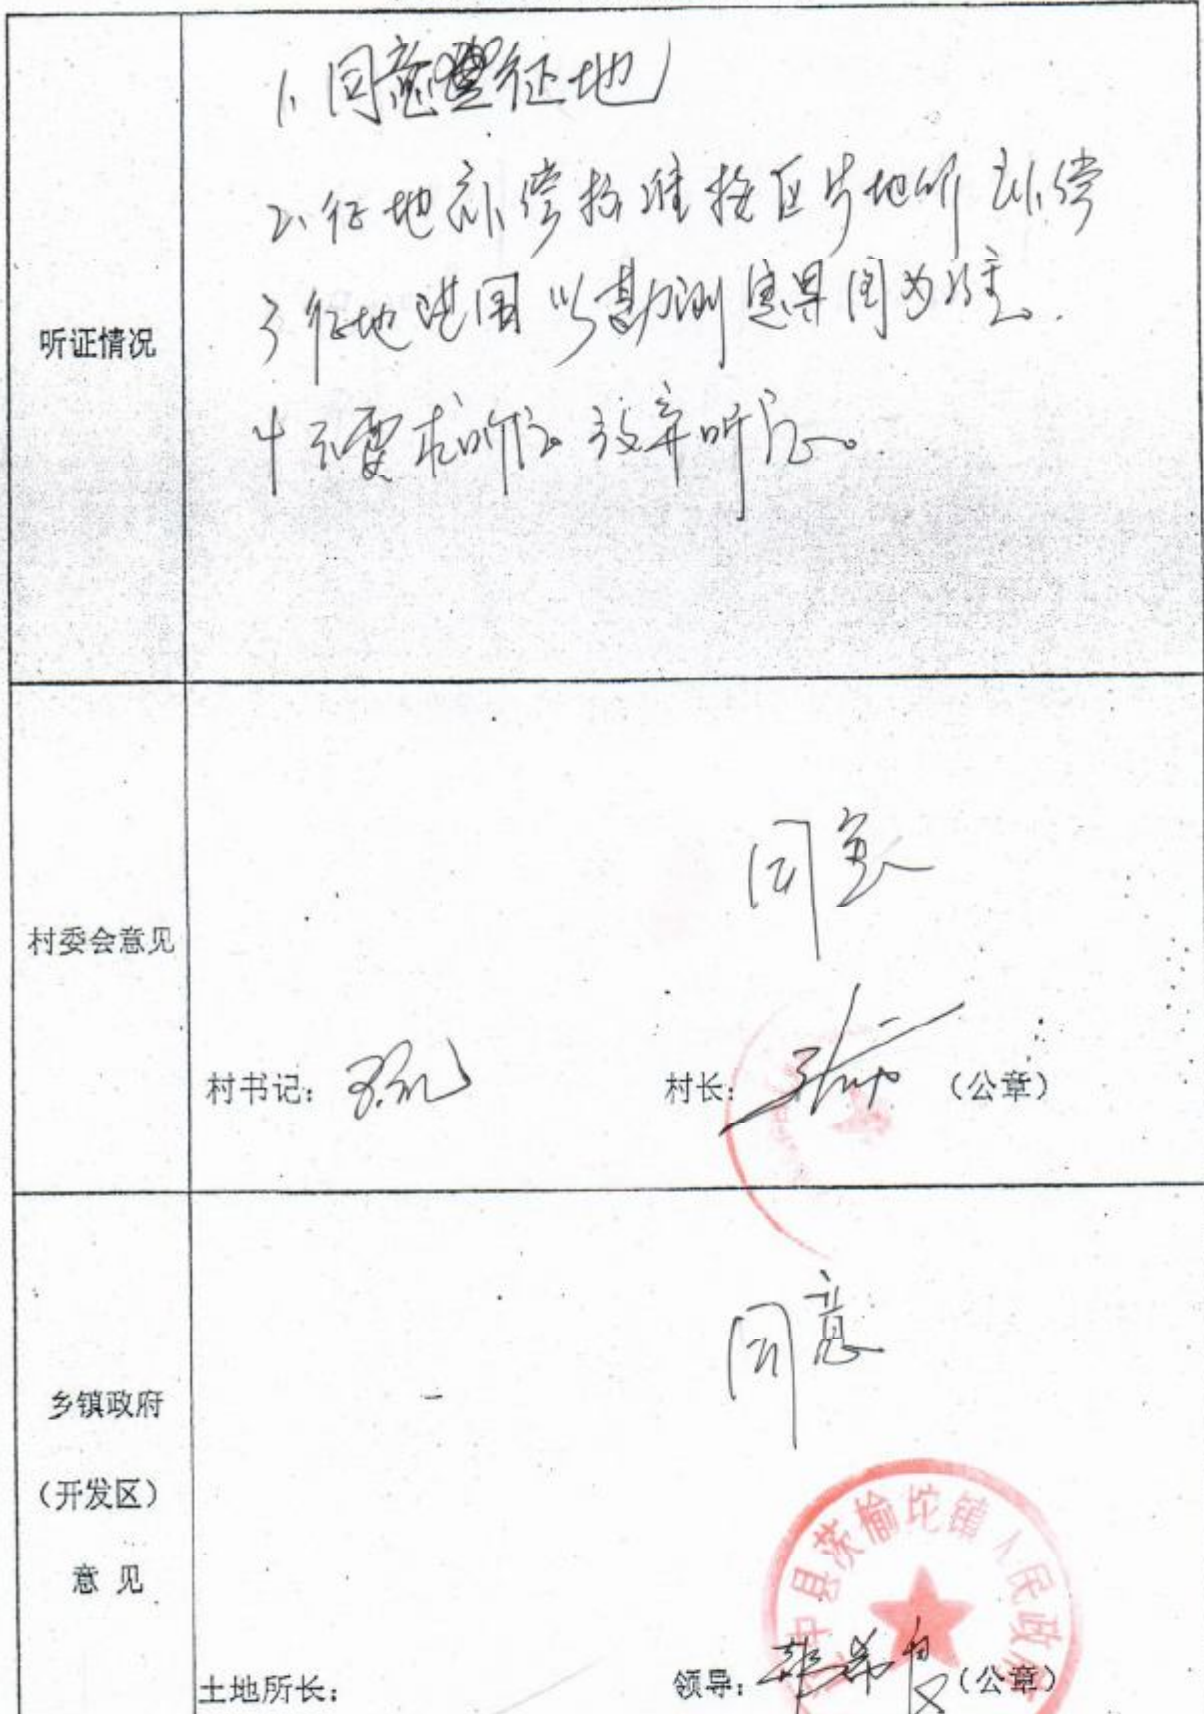 听证情况
1、同意征地
2、征地补偿标准按区片地价补偿
3 征地范围以勘测定界图为准.
4 不要求听证 放弃听证。
村委会意见
同意
村书记：
村长：
（公章）
乡镇政府
（开发区）
意 见
同意
中县茨榆坨镇人民政府
土地所长：
领导：
（公章）